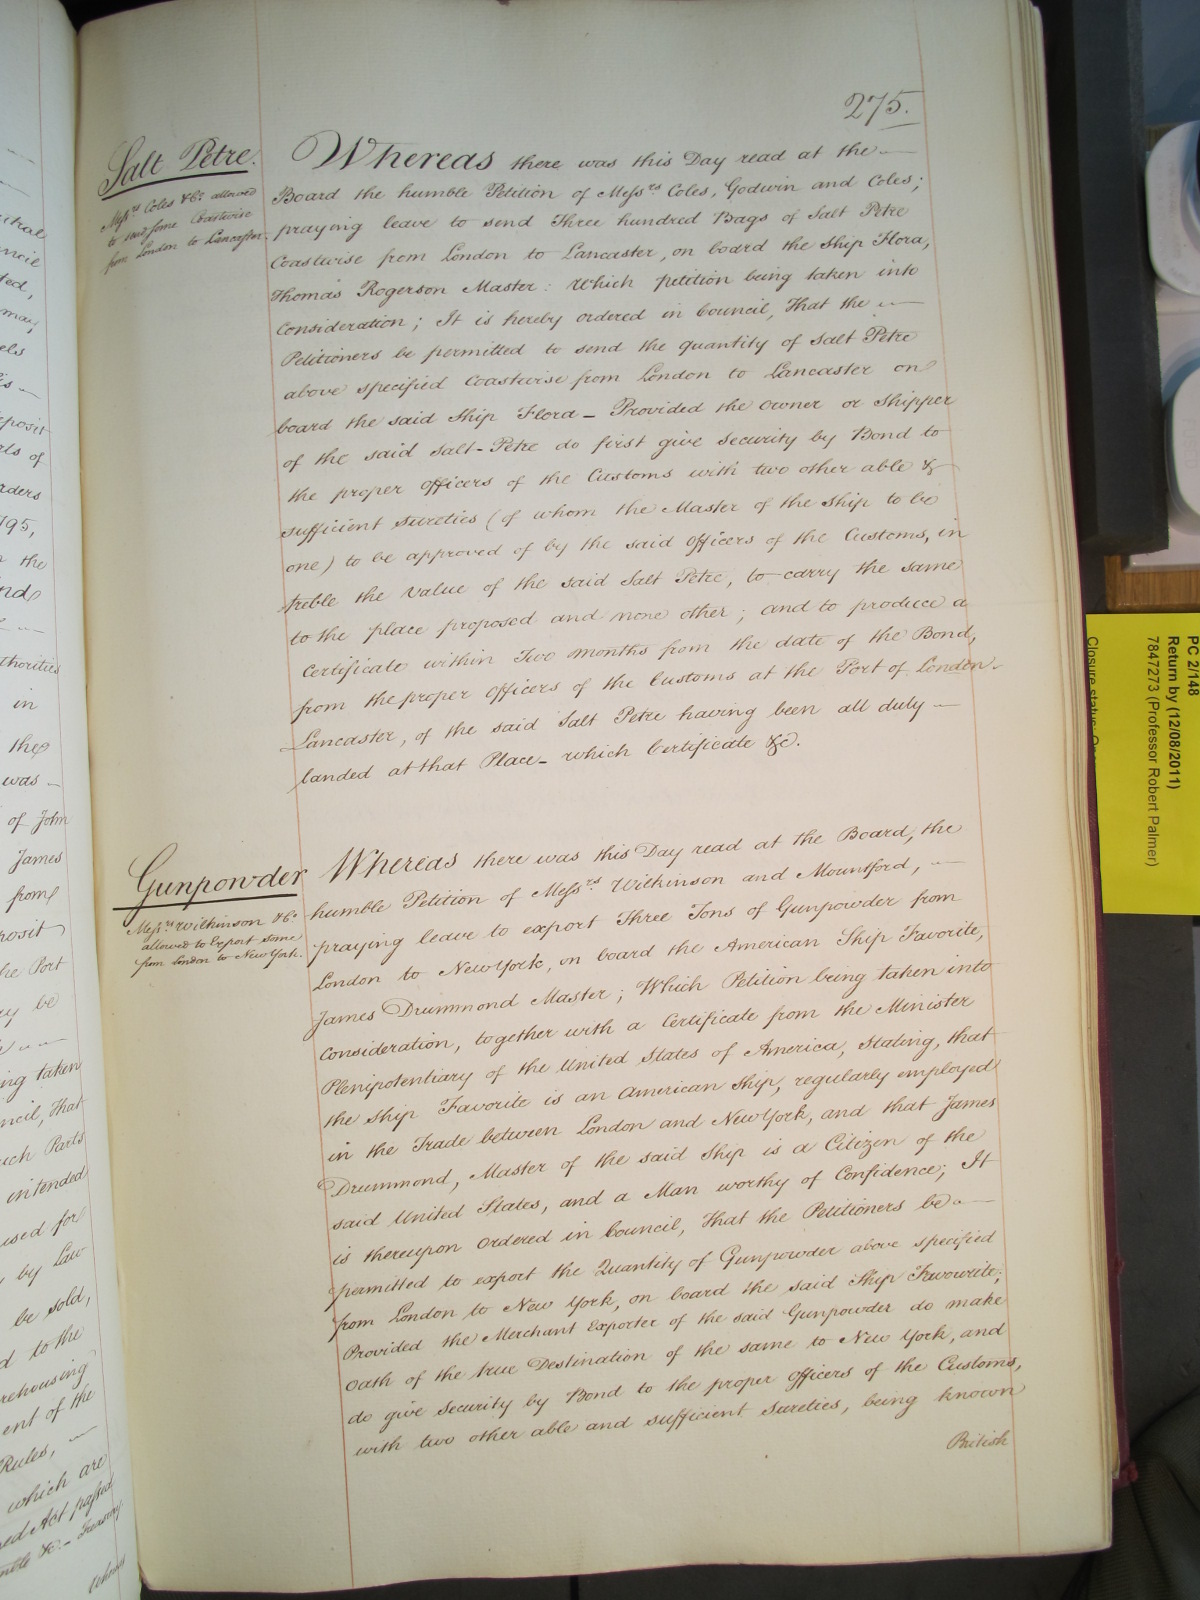 275.
Salt Petre.
Messrs Coles &Co allowed
to send some Coastwise
from London to Lancaster.
Whereas there was this Day read at the
Board the humble Petition of Messrs Coles, Godwin and Coles;
praying leave to send Three hundred Bags of Salt Petre
Coastwise from London to Lancaster, on board the Ship Flora,
Thomas Rogerson Master: Which petition being taken into
Consideration; It is hereby ordered in Council, That the
Petitioners be permitted to send the quantity of Salt Petre
above specified Coastwise from London to Lancaster on
board the said Ship Flora – Provided the Owner or Shipper
of the said Salt-Petre do first give Security by Bond to
the proper Officers of the Customs with two other able &
sufficient Sureties (of whom the Master of the Ship to be
one) to be approved of by the said Officers of the Customs, in
treble the Value of the said Salt Petre, to carry the same
to the place proposed and none other; and to produce a
Certificate within Two months from the date of the Bond,
from the proper Officers of the Customs at the Port of London
Lancaster, of the said Salt Petre having been all duly
landed at that Place – which Certificate &c.
Gunpowder
Messrs Wilkinson &Co
allowed to Export some
from London to New York.
Whereas there was this Day read at the Board, the
humble Petition of Messrs Wilkinson and Mountford,
praying leave to export Three Tons of Gunpowder from
London to New York, on board the American Ship Favorite,
James Drummond Master; Which Petition being taken into
Consideration, together with a Certificate from the Minister
Plenipotentiary of the United States of America, Stating, that
the Ship Favorite is an American Ship, regularly employed
in the Trade between London and New York, and that James
Drummond, Master of the said Ship is a Citizen of the
said United States, and a Man worthy of Confidence; It
is thereupon Ordered in Council, That the Petitioners be
permitted to export the Quantity of Gunpowder above specified
from London to New York, on board the said Ship Favourite;
Provided the Merchant Exporter of the said Gunpowder do make
Oath of the true Destination of the same to New York, and
do give security by Bond to the proper Officers of the Customs,
with two other able and sufficient Sureties, being known
British
PC 2/148
Return by (12/08/2011)
7847273 (Professor Robert Palmer)
Closure status:
ted,
may
posit
als of
795,
the
thorities
in
the
was
of John
James
from
posit
the Port
be
ing taken
ncil, That
uch Parts
intended
used for
by Law
be sold,
to the
rehousing
ent of the
Rules,
which are
Act passed